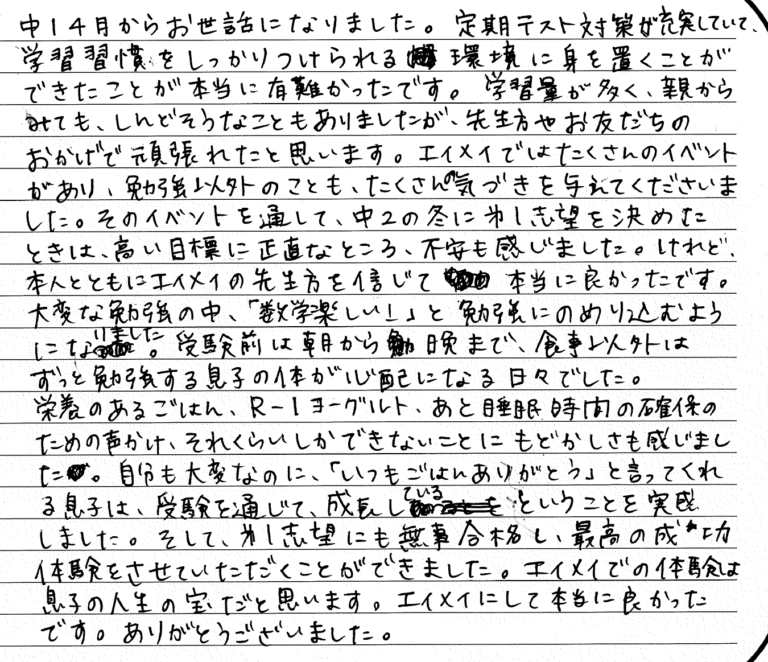 中1 4月からお世話になりました。定期テスト対策が充実していて、
学習習慣をしっかりつけられる環境に身を置くことが
できたことが本当に有難かったです。学習量が多く、親から
みても、しんどそうなこともありましたが、先生方やお友だちの
おかげで頑張れたと思います。エイメイではたくさんのイベント
があり、勉強以外のことも、たくさんの気づきを与えてくださいま
した。そのイベントを通して、中2の冬に第1志望を決めた
ときは、高い目標に正直なところ、不安も感じました。けれど、
本人とともにエイメイの先生方を信じて本当に良かったです。
大変な勉強の中、「数学楽しい!」と勉強にのめり込むよう
になりました。受験前は朝から晩まで、食事以外は
ずっと勉強する息子の体が心配になる日々でした。
栄養のあるごはん、R-1ヨーグルト、あと睡眠時間の確保の
ための声かけ、それくらいしかできないことにもどかしさも感じまし
た。自分も大変なのに、「いつもごはんありがとう」と言ってくれ
る息子は、受験を通じて、成長しているということを実感
しました。そして、第1志望にも無事合格し、最高の成功
体験をさせていただくことができました。エイメイでの体験は
息子の人生の宝だと思います。エイメイにして本当に良かった
です。ありがとうございました。